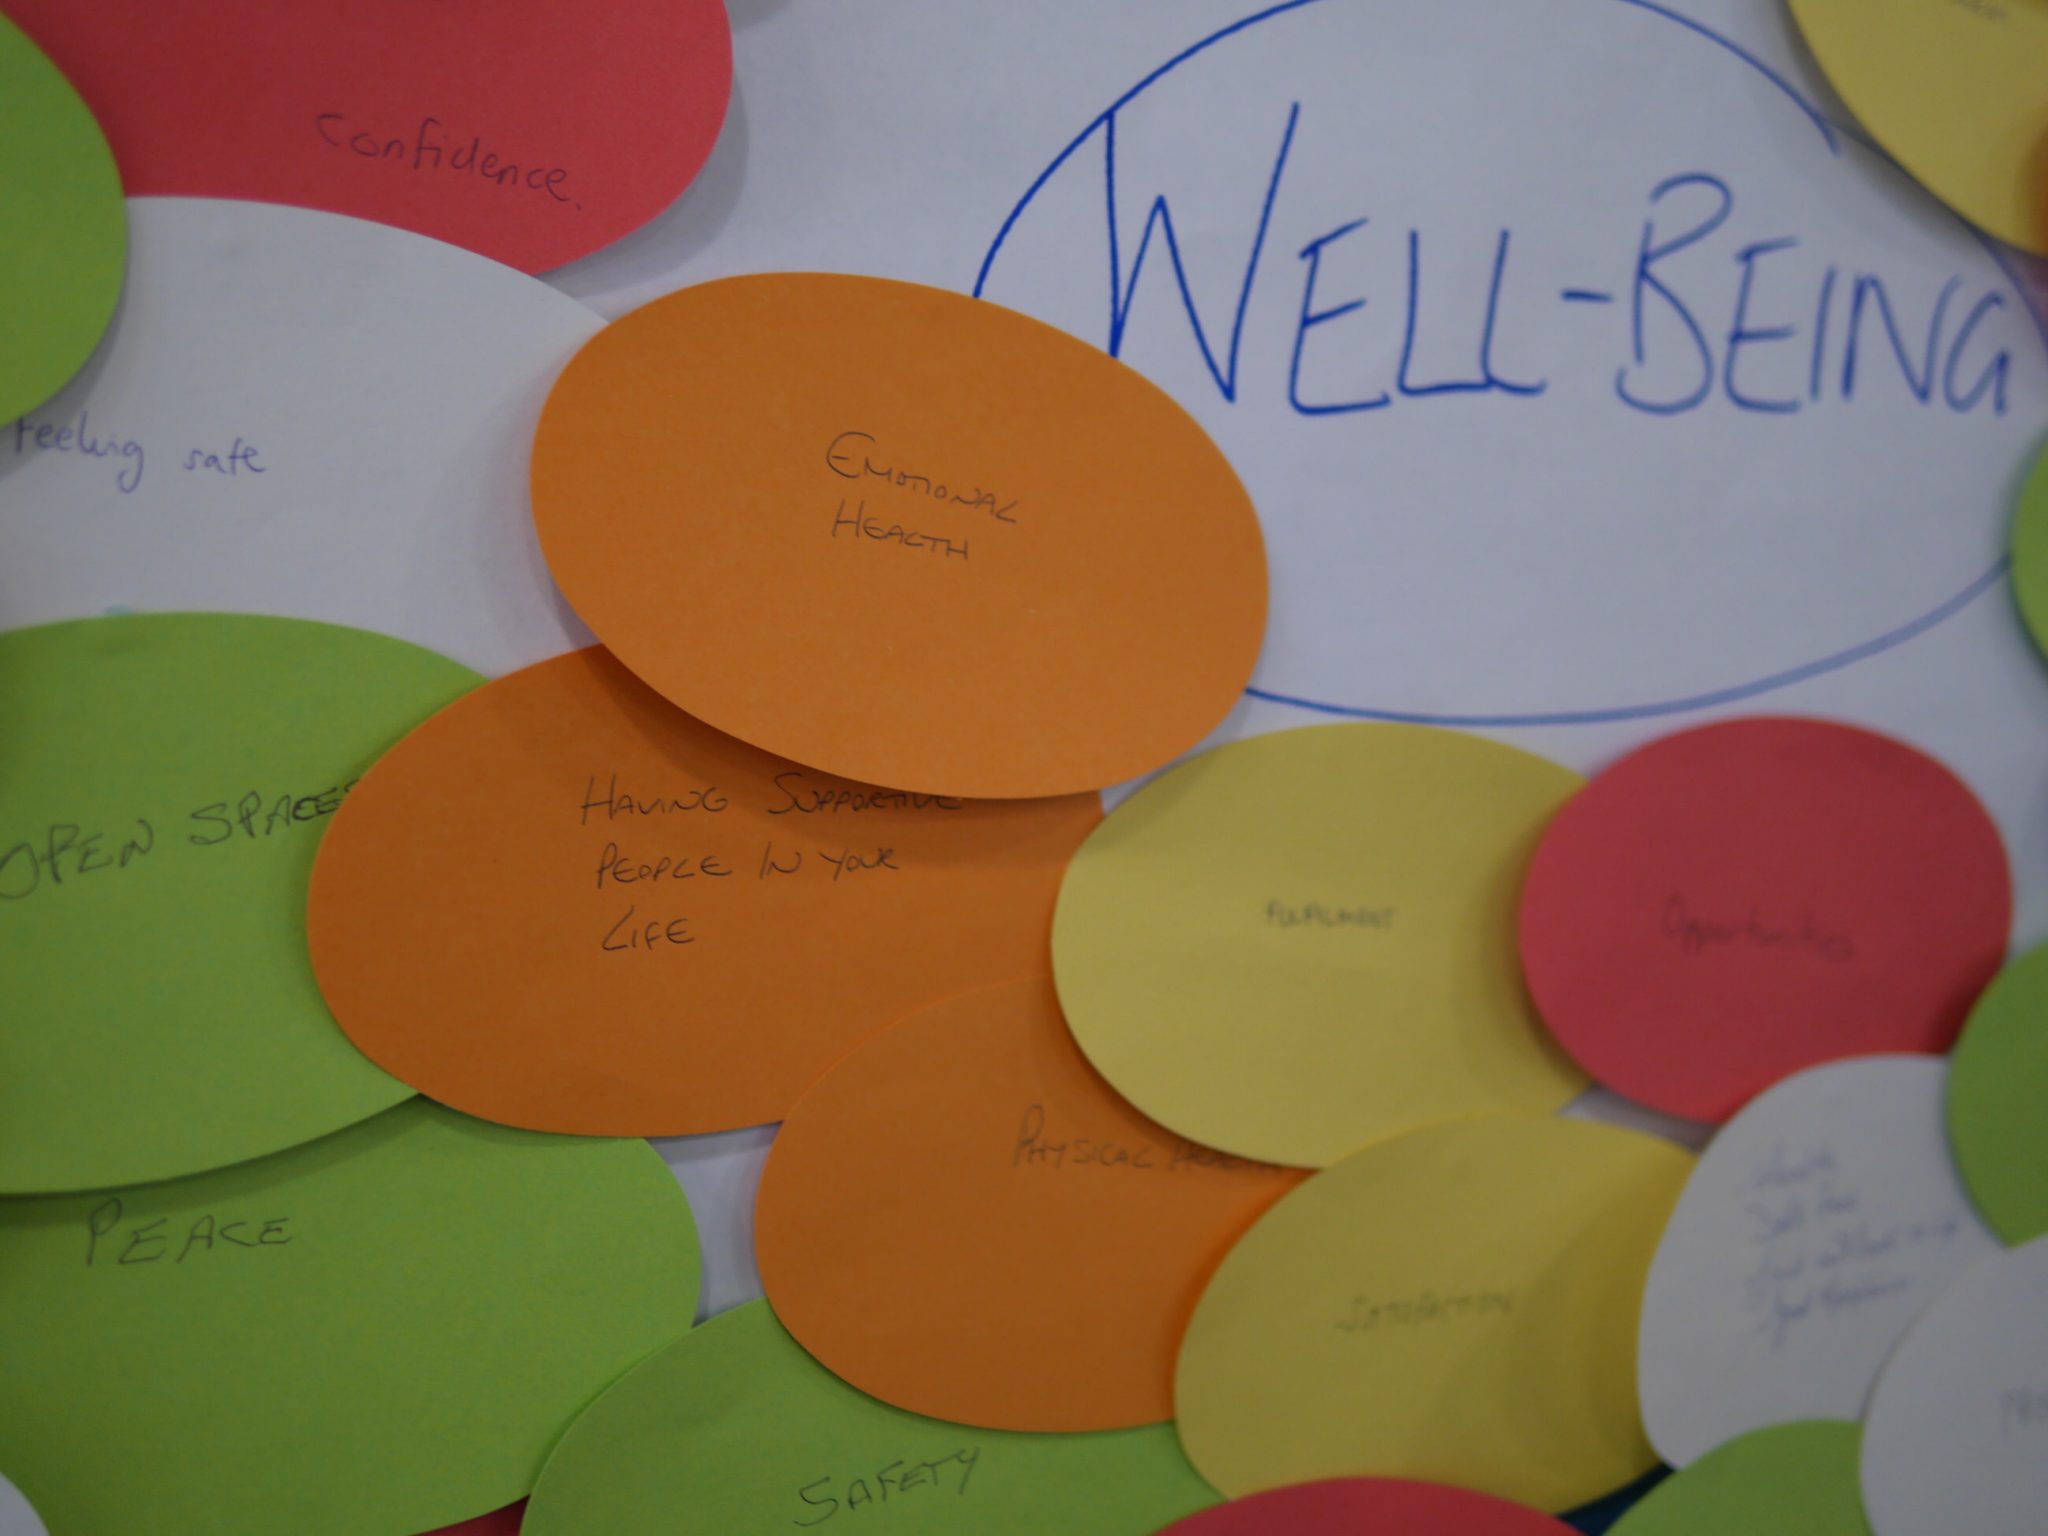 Confidence.
WELL-BEING
Feeling safe
EMOTIONAL
HEALTH
OPEN SPACES
HAVING SUPPORTIVE
PEOPLE IN YOUR
LIFE
FULFILMENT
Opportunities
PHYSICAL HEALTH
PEACE
SATISFACTION
SAFETY